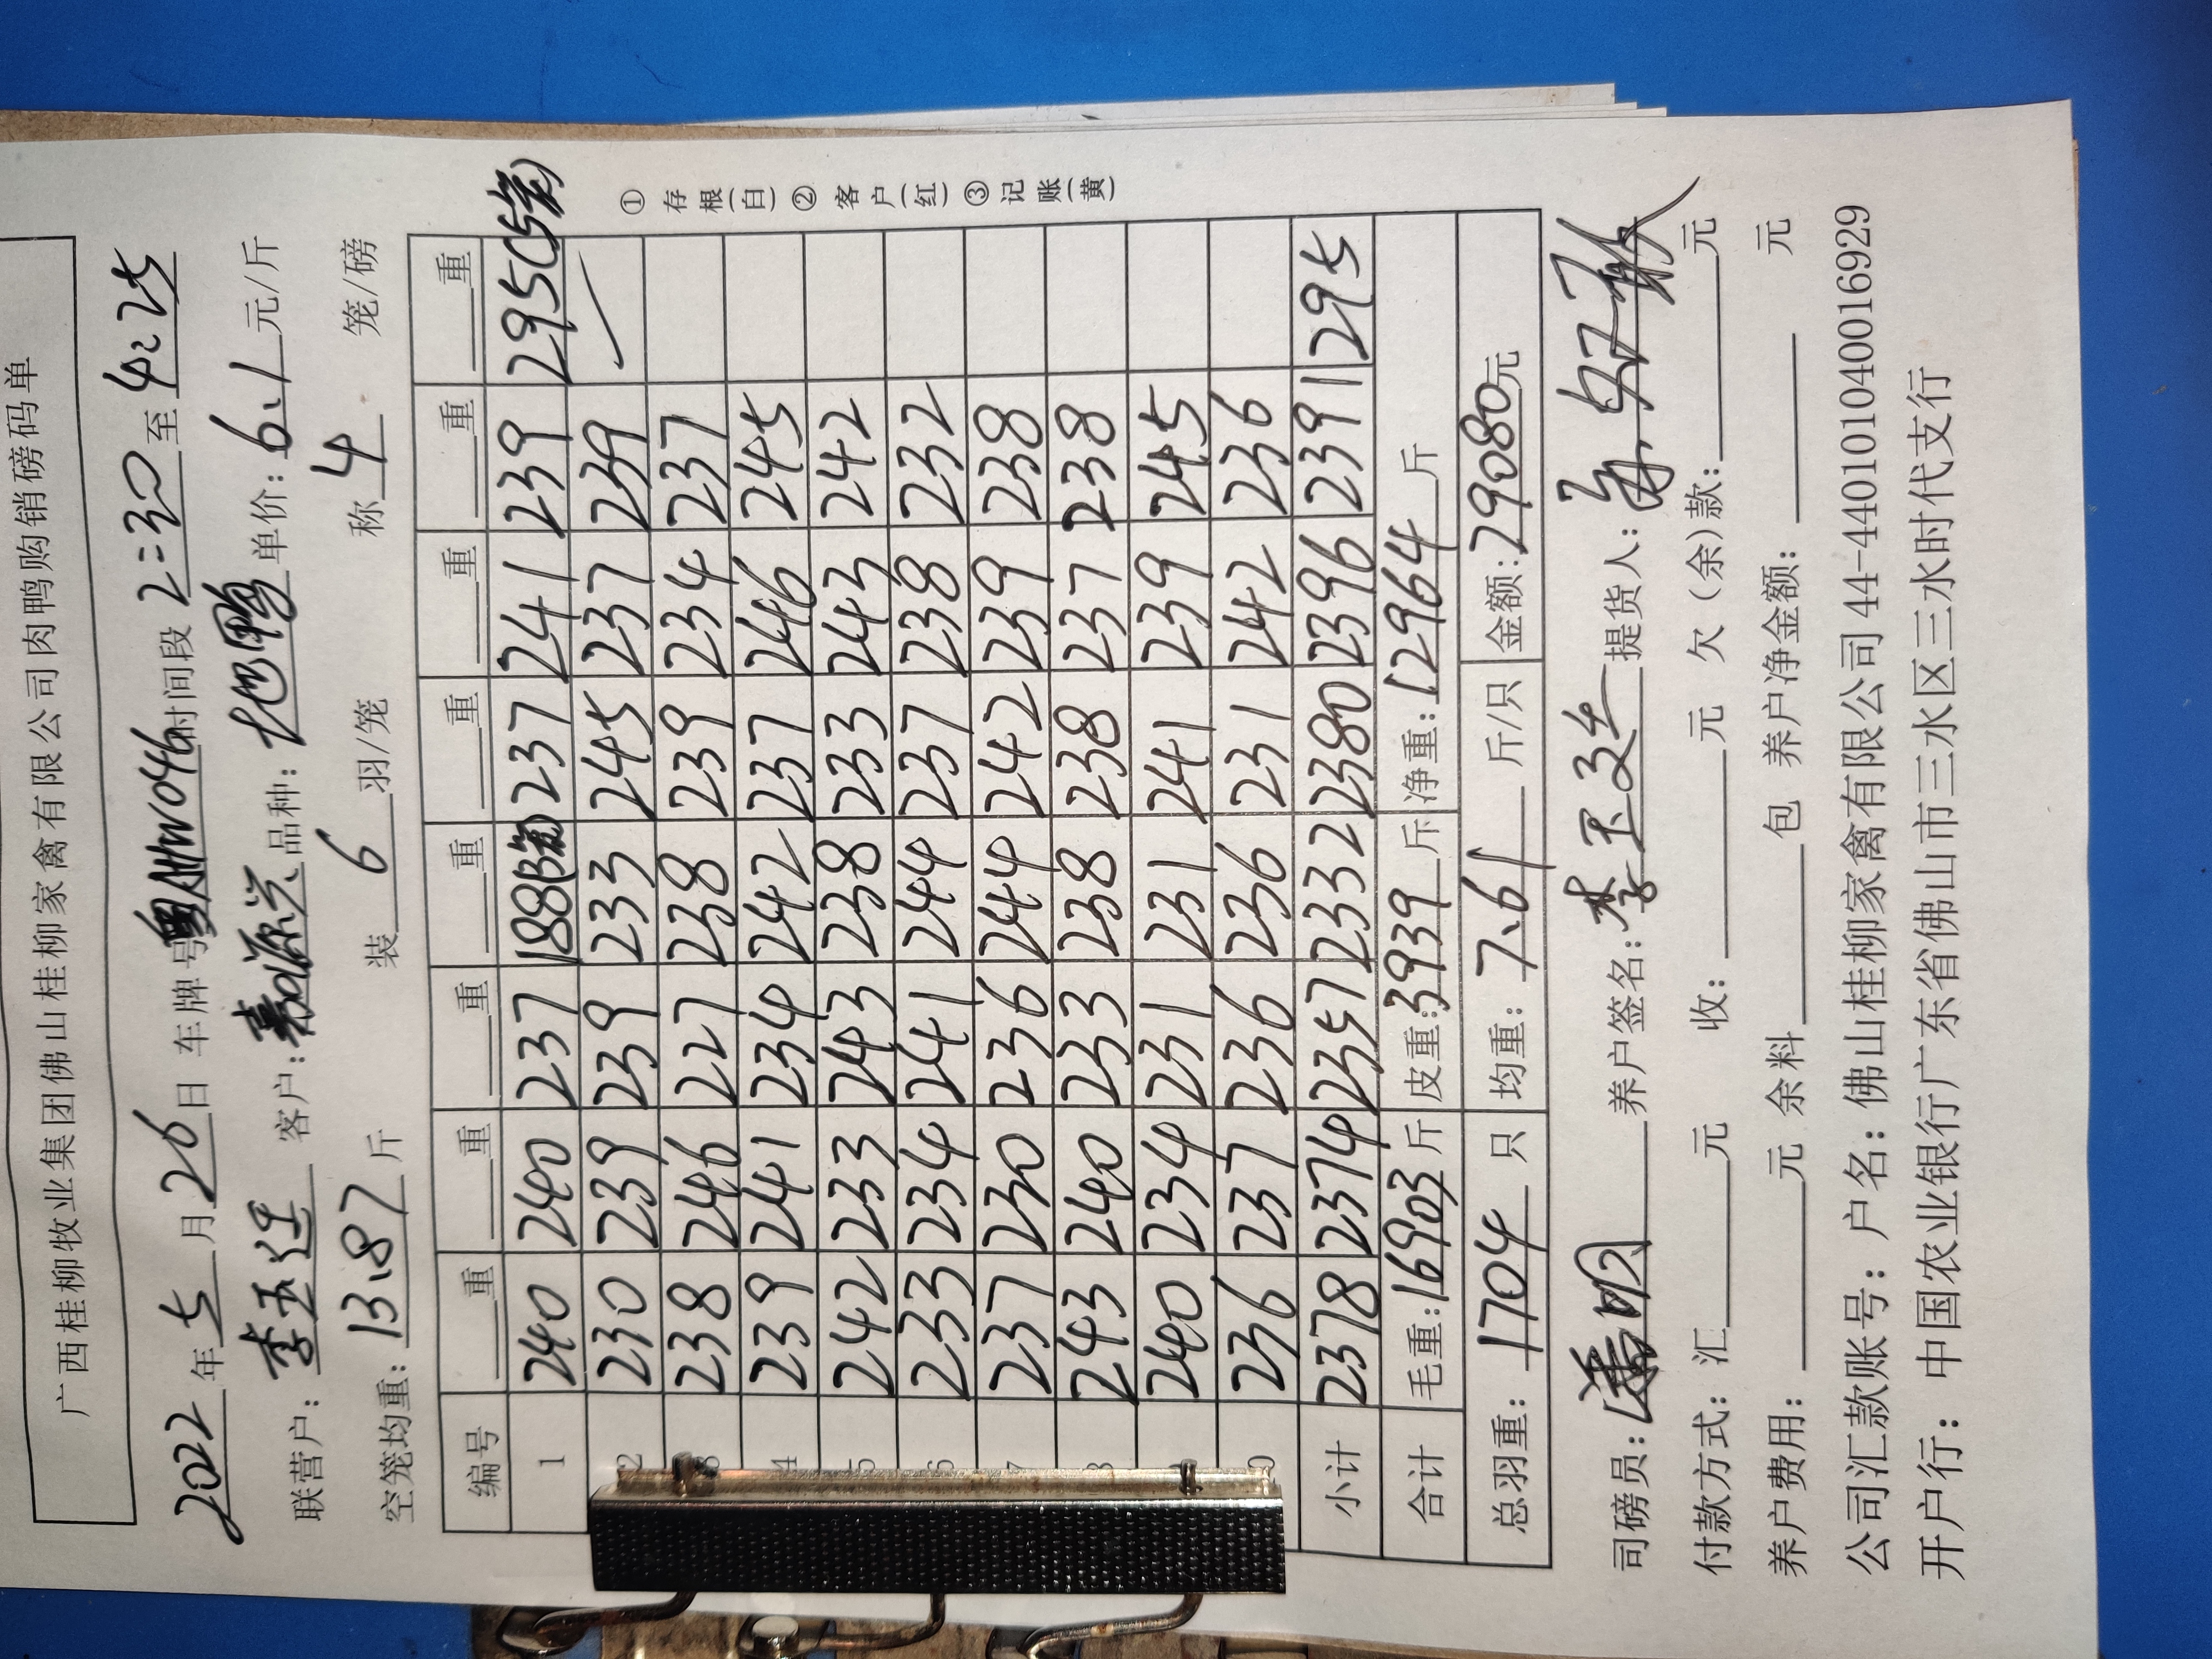 广西桂柳牧业集团佛山桂柳家禽有限公司肉鸭购销磅码单
2022年5月26日 车牌号 时间段2:30至4:25
联营户: 李玉廷 客户: 嘉源兴 品种: 单价: 6.1元/斤
空笼均重: 13.87斤 装6羽/笼 称4笼/磅
编号 重 重 重 重 重 重 重 重
1 240 240 237 188(3笼) 237 241 239 295(5笼)
2 230 239 239 233 245 237 239
3 238 246 227 238 239 234 237
4 239 241 234 242 237 246 245
5 242 233 243 238 233 243 242
6 233 234 241 244 237 238 232
7 237 230 236 244 242 239 238
8 243 240 233 238 238 237 238
240 234 231 231 241 239 245
0 236 237 236 236 231 242 236
小计 2378 2374 2357 2332 2380 2396 2391 295
合计 毛重: 16903斤 皮重: 3939斤 净重: 12964斤
总羽重: 1704只 均重: 7.61斤/只 金额: 29080元
① 存根(白) ② 客户(红) ③ 记账(黄)
司磅员: 养户签名: 李玉廷 提货人:
付款方式: 汇元 收: 元 欠(余)款: 元
养户费用: 元 余料包 养户净金额: 元
公司汇款账号: 户名: 佛山桂柳家禽有限公司 44-440101040016929
开户行: 中国农业银行广东省佛山市三水区三水时代支行